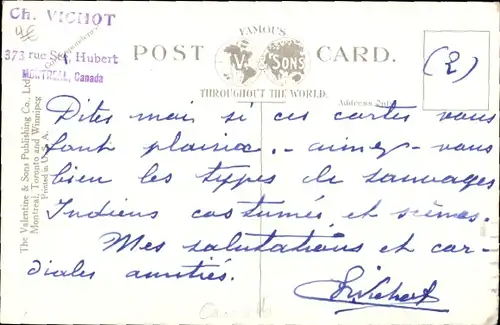 Ch. VICHOT
373 rue St. Hubert
MONTREAL, Canada
Correspondence
POST CARD.
FAMOUS
V. & SONS
THROUGHOUT THE WORLD.
Address Only
(2)
Dites moi si ces cartes vous
font plaisir. - aimez-vous
bien les types de sauvages
Indiens costumés et scènes.
Mes salutations et cor-
diales amitiés.
ChVichot
The Valentine & Sons Publishing Co., Ltd.
Montreal, Toronto and Winnipeg
Printed in U.S.A.
Canada